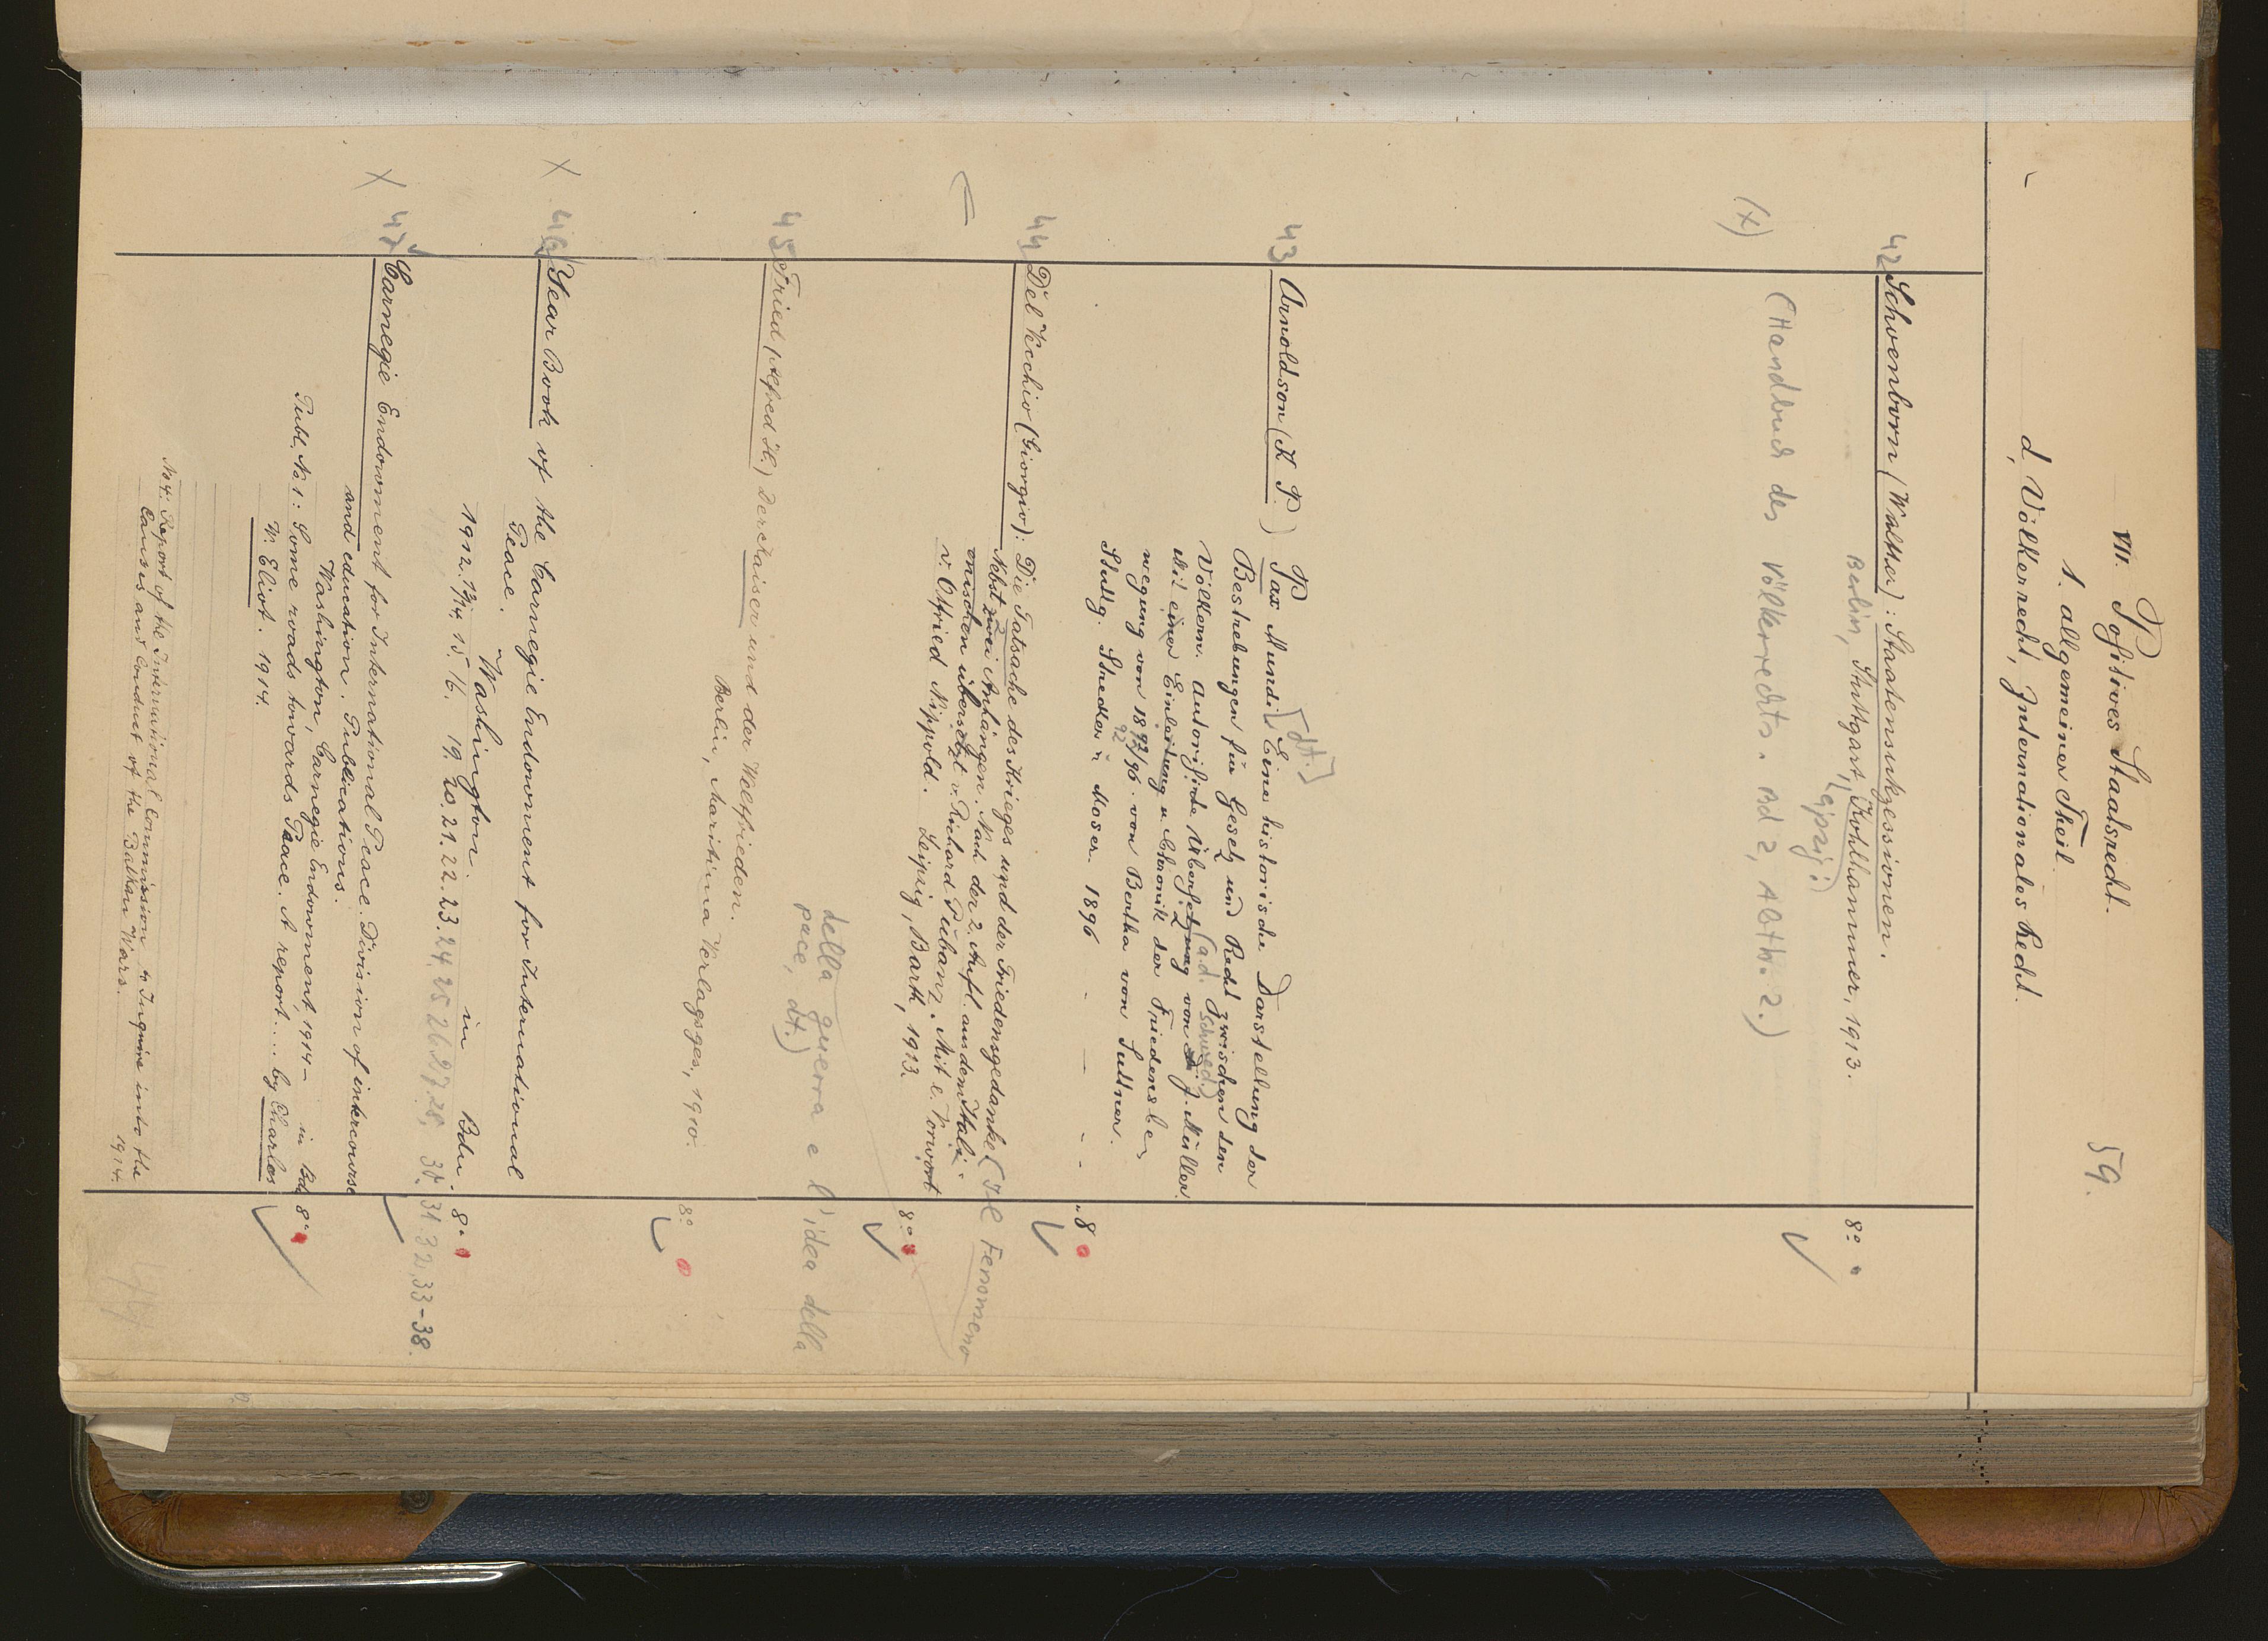 VII. Positives Staatsrecht.
59.
1. allgemeiner Theil.
d, Völkerrecht, Internationales Recht.
42 Schoenborn (Walther): Staatensukzessionen.
Berlin, Stuttgart, Leipzig: Kohlhammer, 1913. 8°
(x) (Handbuch des Völkerrechts. Bd 2, Abth. 2.)
43 Arnoldson (K. P.) Pax Mundi [dt.] Eine historische Darstellung der
Bestrebungen für Gesetz und Recht zwischen den
Völkern. Autorisirte Übersetzung (a.d. Schwed.) von J. Müller.
Mit einer Einleitung u. Chronik der Friedensbe-
wegung von 1892/96. von Bertha von Suttner.
92
Stuttg. Strecker u. Moser. 1896 - - - - 8
44 Del Vecchio (Giorgio): Die Tatsache des Krieges und der Friedensgedanke (Il Fenomeno
della guerra e l'idea della
pace, dt.)
Nebst zwei Anhängen. Nach der 2. Aufl. aus dem Itali-
enischen übersetzt v. Richard Pubanz. Mit e. Vorwort
v. Otfried Nippold. Leipzig, Barth, 1913. 8°
45 Fried (Alfred H.) Der Kaiser und der Weltfrieden.
Berlin, Maritima Verlagsges., 1910. 8°
X 46 Year Book of the Carnegie Endowment for International
Peace. Washington. in Bdn. 8°
1912. 13/14 15. 16. 19. 20. 21. 22. 23. 24. 25 26 27 28. 30. 31 32, 33-38.
X 47 Carnegie Endowment for International Peace. Division of intercourse
and education. Publications.
Washington, Carnegie Endowment, 1914- in Bd 8°
Publ. No 1: Some roads towards Peace. A report ... by Charles
W. Eliot. 1914.
No 4: Report of the International Commission to Inquire into the
Causes and Conduct of the Balkan Wars. 1914.